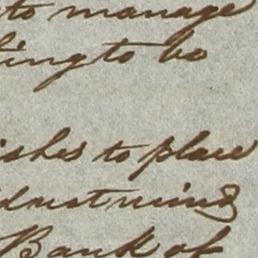 to manage
ting to be
ishes to place
dust mind
Bank of